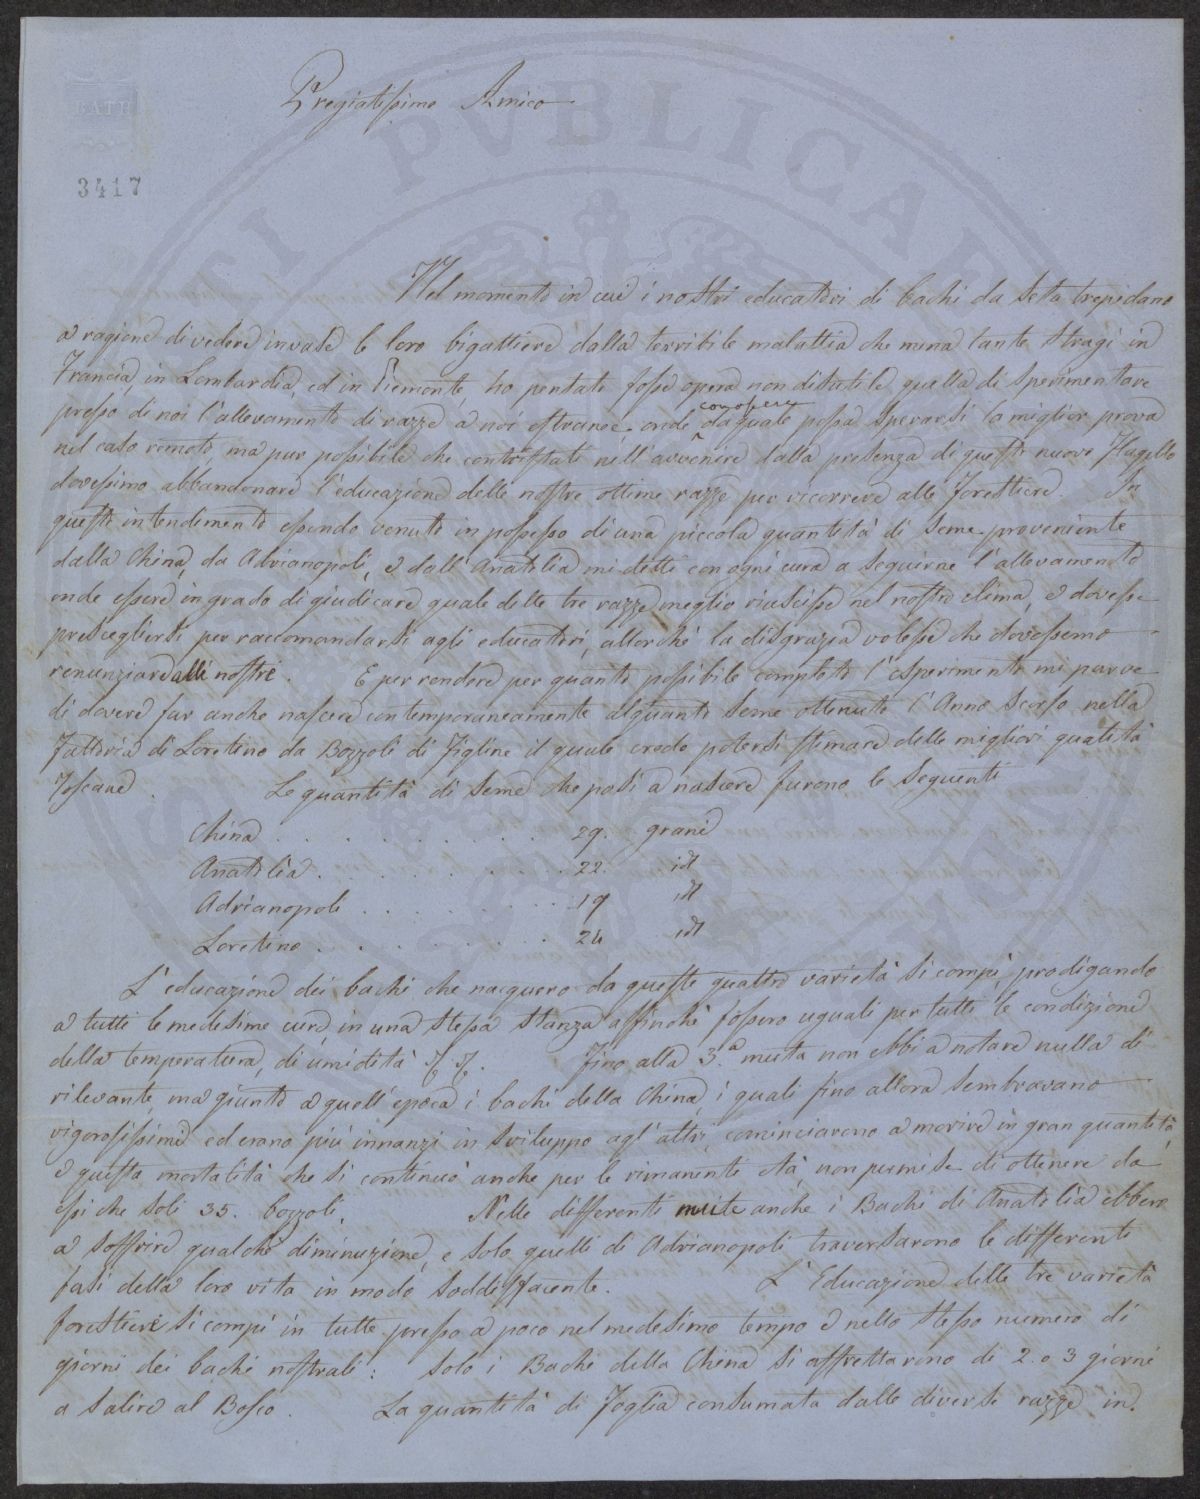 BATE
3417
Pregiatissimo Amico
Nel momento in cui i nostri educatori di bachi da seta trepidano
a ragione di vedere invase le loro bigattiere dalla terribile malattia che mena tante stragi in
Francia, in Lombardia, ed in Piemonte, ho pensato fosse opera non disutile quella di sperimentare
presso di noi l'allevamento di razze a noi estranee, onde conoscere
da quale possa sperarsi la miglior prova
nel caso remoto ma pur possibile che contristati nell'avvenire dalla presenza di questo nuovo flagello
dovessimo abbandonare l'educazione delle nostre ottime razze per ricorrere alle forestiere. In
questo intendimento essendo venuto in possesso di una piccola quantità di seme proveniente
dalla China, da Adrianopoli, e dall'Anatolia mi detti con ogni cura a seguirne l'allevamento
onde essere in grado di giudicare quale delle tre razze meglio riuscisse nel nostro clima, e dovesse
prescegliersi per raccomandarsi agli educatori, allorché la disgrazia volesse che dovessemo
renunziare alle nostre. E per rendere per quanto possibile completo l'esperimento mi parve
di dovere far anche nascere contemporaneamente alquanto seme ottenuto l'Anno scorso nella
Fattoria di Loretino da Bozzoli di Figline il quale credo potersi stimare delle migliori qualità
Toscane. Le quantità di seme che posi a nascere furono le seguenti
China . . . . . . . . . 29. grani
Anatolia . . . . . . . . 22. id
Adrianopoli . . . . . . . 19 id
Loretino . . . . . . . . 24 id
L'educazione dei bachi che nacquero da queste quattro varietà si compì, prodigando
a tutti le medesime cure, in una stessa stanza affinchè fossero uguali per tutti le condizioni
della temperatura, di umidità &c &c. Fino alla 3.a muta non ebbi a notare nulla di
rilevante, ma giunto a quell'epoca i bachi della China, i quali fino allora sembravano
vigorosissimi ed erano più innanzi in sviluppo agl'altri, cominciarono a morire in gran quantità,
e questa mortalità che si continuò anche per le rimanenti età, non permise di ottenere da
essi che soli 35. bozzoli. Nelle differenti mute anche i Bachi di Anatolia ebbero
a soffrire qualche diminuzione, e solo quelli di Adrianopoli traversarono le differenti
fasi della loro vita in modo soddisfacente. L'Educazione delle tre varietà
forestiere si compì in tutte presso a poco nel medesimo tempo e nello stesso numero di
giorni dei bachi nostrali: solo i Bachi della China si affrettarono di 2. o 3 giorni
a salire al Bosco. La quantità di Foglia consumata dalle diverse razze in.